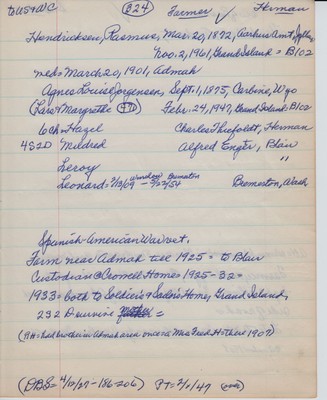 to US+WC (B24) Farmer ✓ Herman
Hendricksen, Rasmus, Mar. 20, 1872, Aarhus Amt,
Nov. 2, 1961, Grand Island = B/02
med = March 20, 1901, Admah
Agnes Louise Jorgensen, Sept. 1, 1875, Carbine, Wyo
(Lars & Margrethe) Feb. 24, 1947, Grand Island, B/02
6 Ch = Hazel Charles Thiefoldt, Herman
4S2D Mildred Alfred Enger, Blair
Leroy "
Leonard = - 7/22/54 Bremerton, Wash
Spanish-American War vet.
Farm near Admah till 1925 = to Blair
Custodian @ Crowell Home = 1925-32 =
1933 = both to Soldier's & Sailor's Home, Grand Island,
232 D =
(RH = had brother in Admah area once = Mrs Fred H = there 1907)
(DBS = 4/12/27 - 186-206) PT = 2/ /47